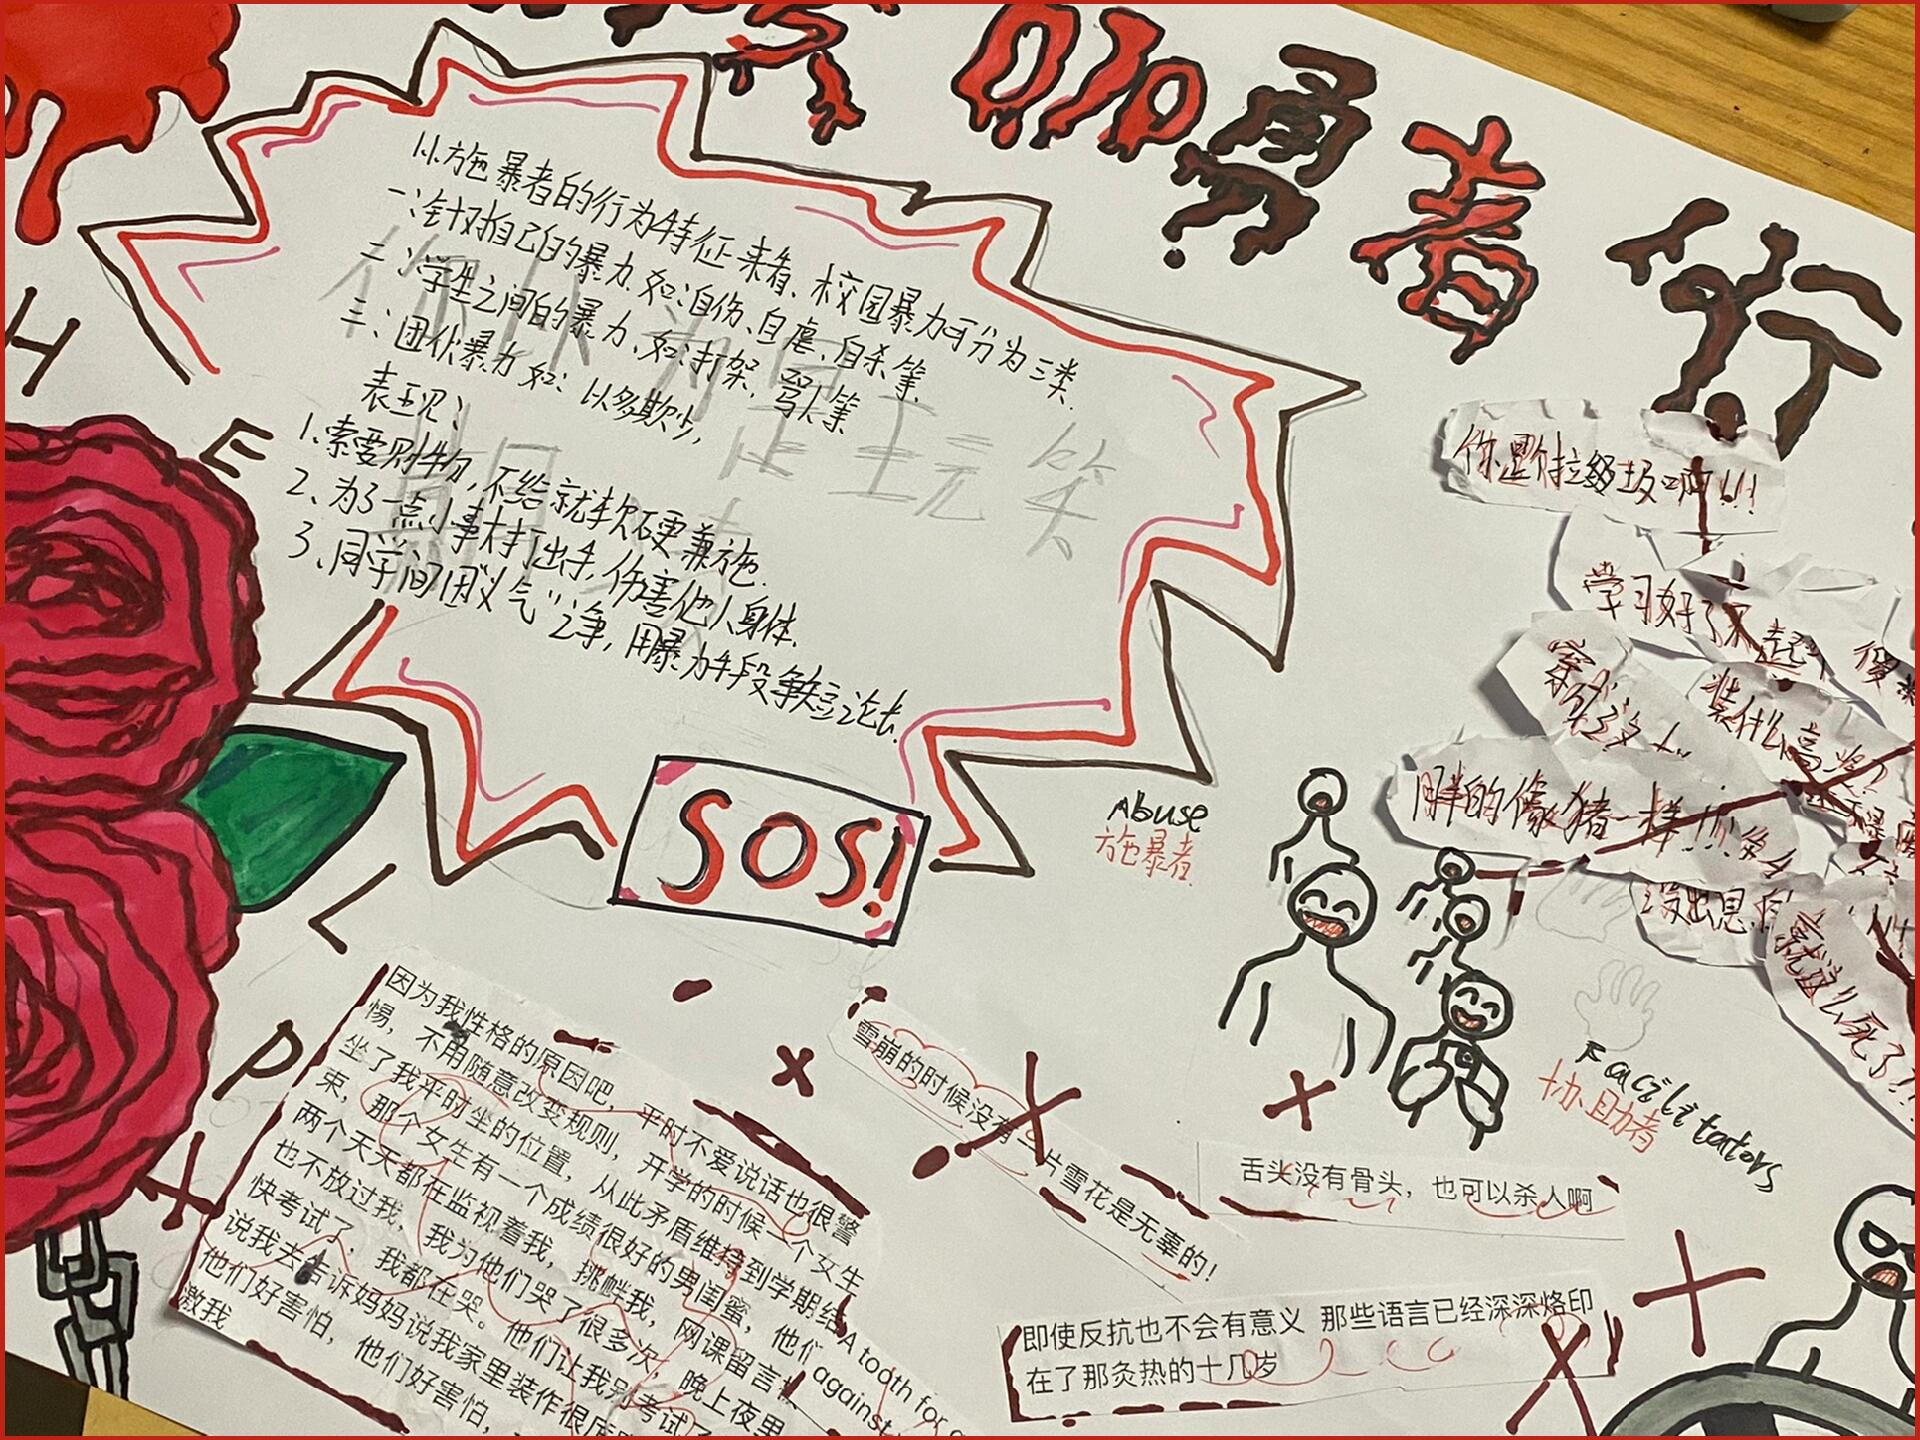 加勇者行
从施暴者的行为特征来看、校园暴力可分为三类.
一:针对自己的暴力.如:自伤、自虐、自杀等.
二:学生之间的暴力、如:打架.骂人等
三:团伙暴力 如: 以多欺少,
表现:
1.索要财物,不给就软硬兼施.
2、为了一点小事大打出手,伤害他人身体.
3、同学间因"义气"之争,用暴力手段争论
H
E
L
P
SOS!
Abuse
施暴者
Facilitators
协助者
你是个垃圾啊!!!
学习好了不起
装什么高
胖的像猪一样!!!
没出息
就这么死了!
因为我性格的原因吧,平时不爱说话也很警
惕,不用随意改变规则,开学的时候一个女生
坐了我平时坐的位置,从此矛盾维持到学期结
束,那个女生有一个成绩很好的男闺蜜,他们
两个天天都在监视着我,挑衅我,网课留言
也不放过我,我为他们哭了很多次,晚上夜里
快考试了,我都在哭。他们让我别考试了
说我去告诉妈妈说我家里装作很
他们好害怕,他们好害怕,
激我
A tooth for
against
雪崩的时候没有一片雪花是无辜的!
舌头没有骨头,也可以杀人啊
即使反抗也不会有意义 那些语言已经深深烙印
在了那炙热的十几岁